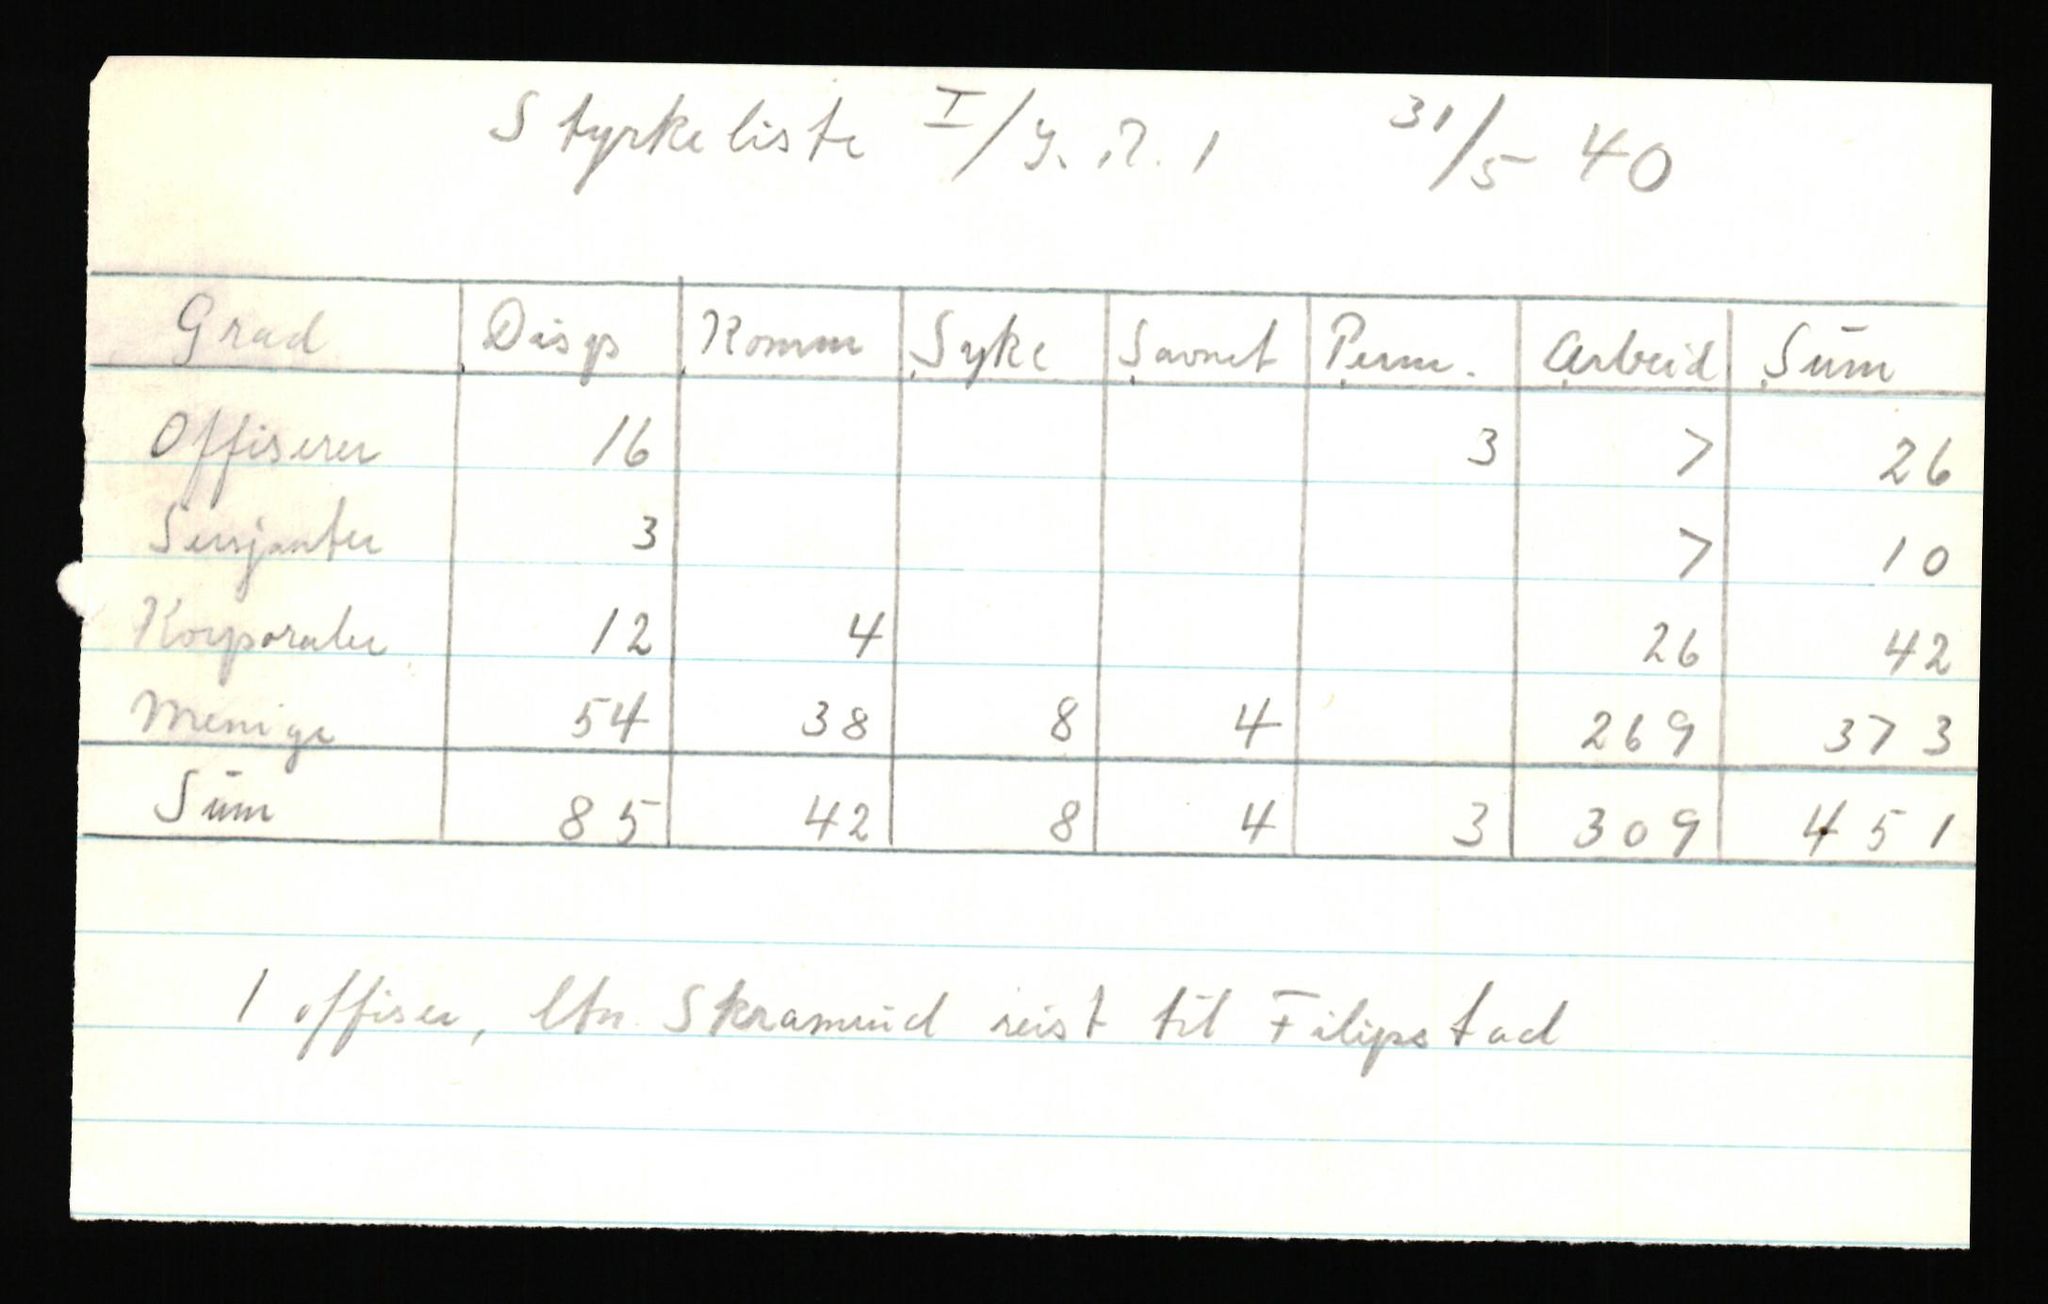 Styrkeliste I/J.R. 1 31/5 40
Grad Disp Komm Syke Savnet Perm. Arbeid Sum
Offiserer 16 3 7 26
Sersjanter 3 7 10
Korporaler 12 4 26 42
Menige 54 38 8 4 269 373
Sum 85 42 8 4 3 309 451
1 offiser, ltn. Skramund reist til Filipstad